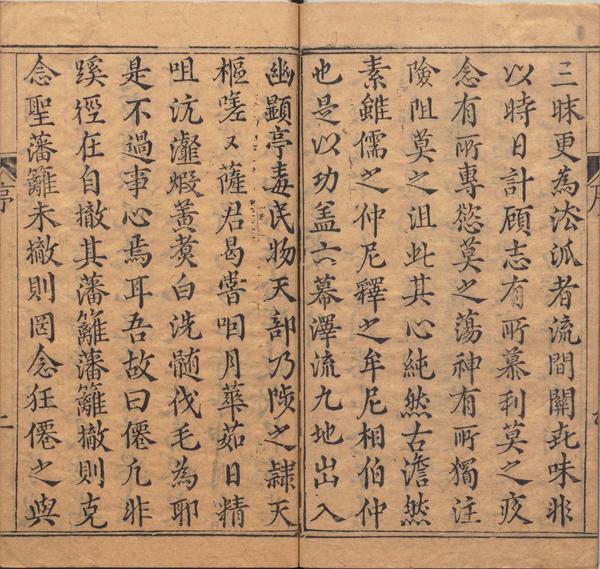 三昧更為法派者流間關味非
以時日計顧志有所慕利莫之疚
念有所專慾莫之蕩神有所獨注
險阻莫之沮此其心純然古澹然
素雖儒之仲尼釋之牟尼相伯仲
也是以功盖六幕澤流九地出入
幽顯亭毒民物天部乃陟之隷天
樞嗟又薩君曷嘗咽月華茹日精
咀沆瀣煅黃煑白洗髓伐毛為耶
是不過事心焉耳吾故曰僊凡非
蹊徑在自撤其藩籬藩籬撤則克
念聖藩籬未撤則罔念狂僊之與
序 二